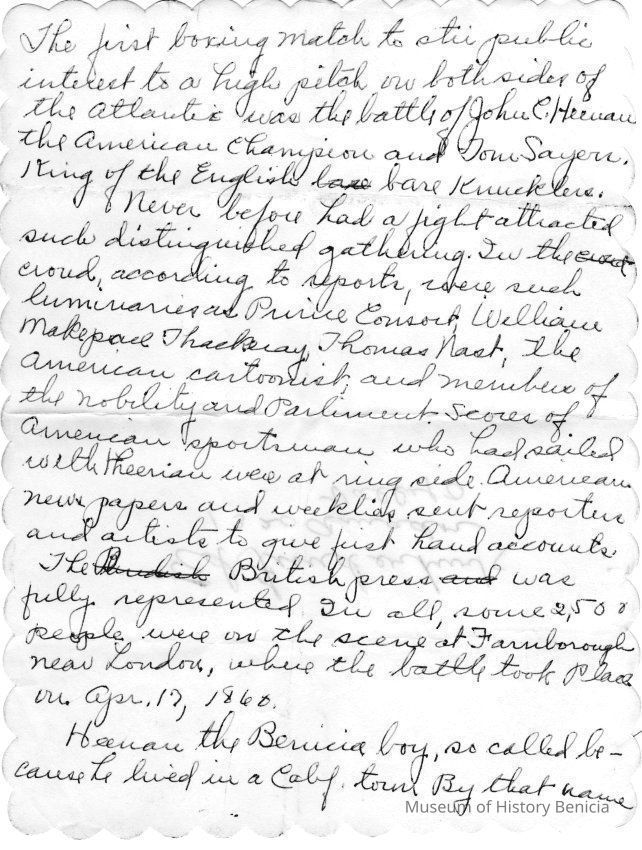 The first boxing match to stir public
interest to a high pitch on both sides of
the Atlantic was the battle of John C. Heenan
the American Champion and Tom Sayers.
King of the English bare bare Knucklers.
Never before had a fight attracted
such distinguished gathering. In the crowd
croud, according to reports, were such
luminaries as Prince Consort, William
Makepeace Thackeray, Thomas Nast, The
American cartoonist, and members of
the nobility and Parliment. Scores of
American sportsman who had sailed
with Heenan were at ring side. American
news papers and weeklies sent reporters
and artists to give first hand accounts.
The British press and was
fully represented. In all, some 2,500
people were on the scene at Farnborough
near London, where the battle took place
on Apr. 17, 1860.
Heenan the Benicia boy, so called be-
cause he lived in a Calif. town By that name
Museum of History Benicia